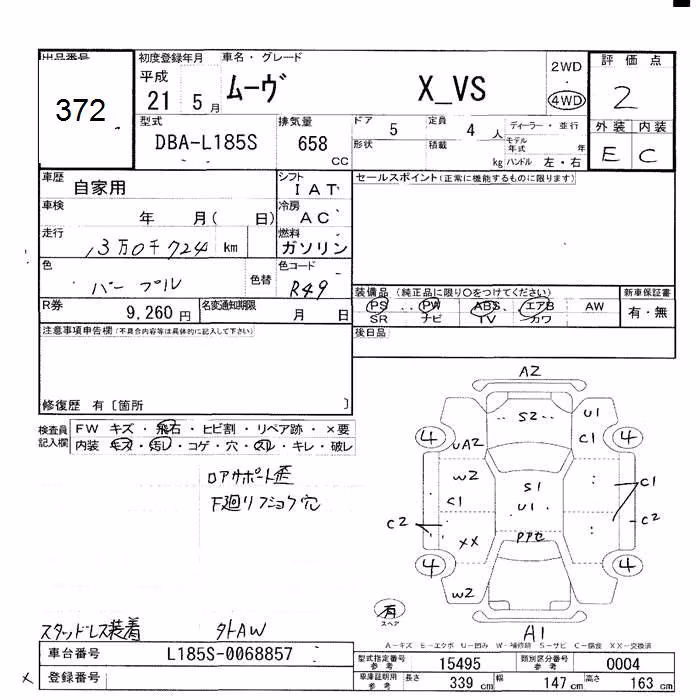 出品番号
372
初度登録年月
平成
21 5月
車名・グレード
ムーヴ X_VS
2WD
4WD
評価点
2
型式
DBA-L185S
排気量
658 CC
ドア 5
形状
定員 4 人
積載 kg
ディーラー・並行
モデル年式 年
ハンドル 左・右
外装 内装
E C
車歴
自家用
シフト
IAT
セールスポイント(正常に機能するものに限ります)
車検
年 月( 日)
冷房
AC
走行
13万0千724 km
燃料
ガソリン
色
パープル
色替
色コード
R49
装備品 (純正品に限り○をつけてください)
PS PW ABS エアB AW
SR ナビ TV カワ
新車保証書
有・無
R券
9,260円
名変通知期限
月 日
後日品
注意事項申告欄(不具合内容等は具体的に記入して下さい)
修復歴 有 [箇所 ]
検査員記入欄
FW キズ・飛石・ヒビ割・リペア跡・×要
内装 キズ・汚レ・コゲ・穴・スレ・キレ・破レ
ロアサポート歪
下廻りフショク穴
A2
S2
U1
C1
4
4
UA2
W2
C1
S1
U1
C1
C2
C2
XX
PPセ
4
4
W2
A1
有
スペア
スタッドレス装着 外AW
A-キズ E-エクボ U-凹み W-補修跡 S-サビ C-腐食 XX-交換済
車台番号
L185S-0068857
型式指定番号 参考
15495
類別区分番号 参考
0004
登録番号
車庫証明用 参考
長さ 339 cm 幅 147 cm 高さ 163 cm